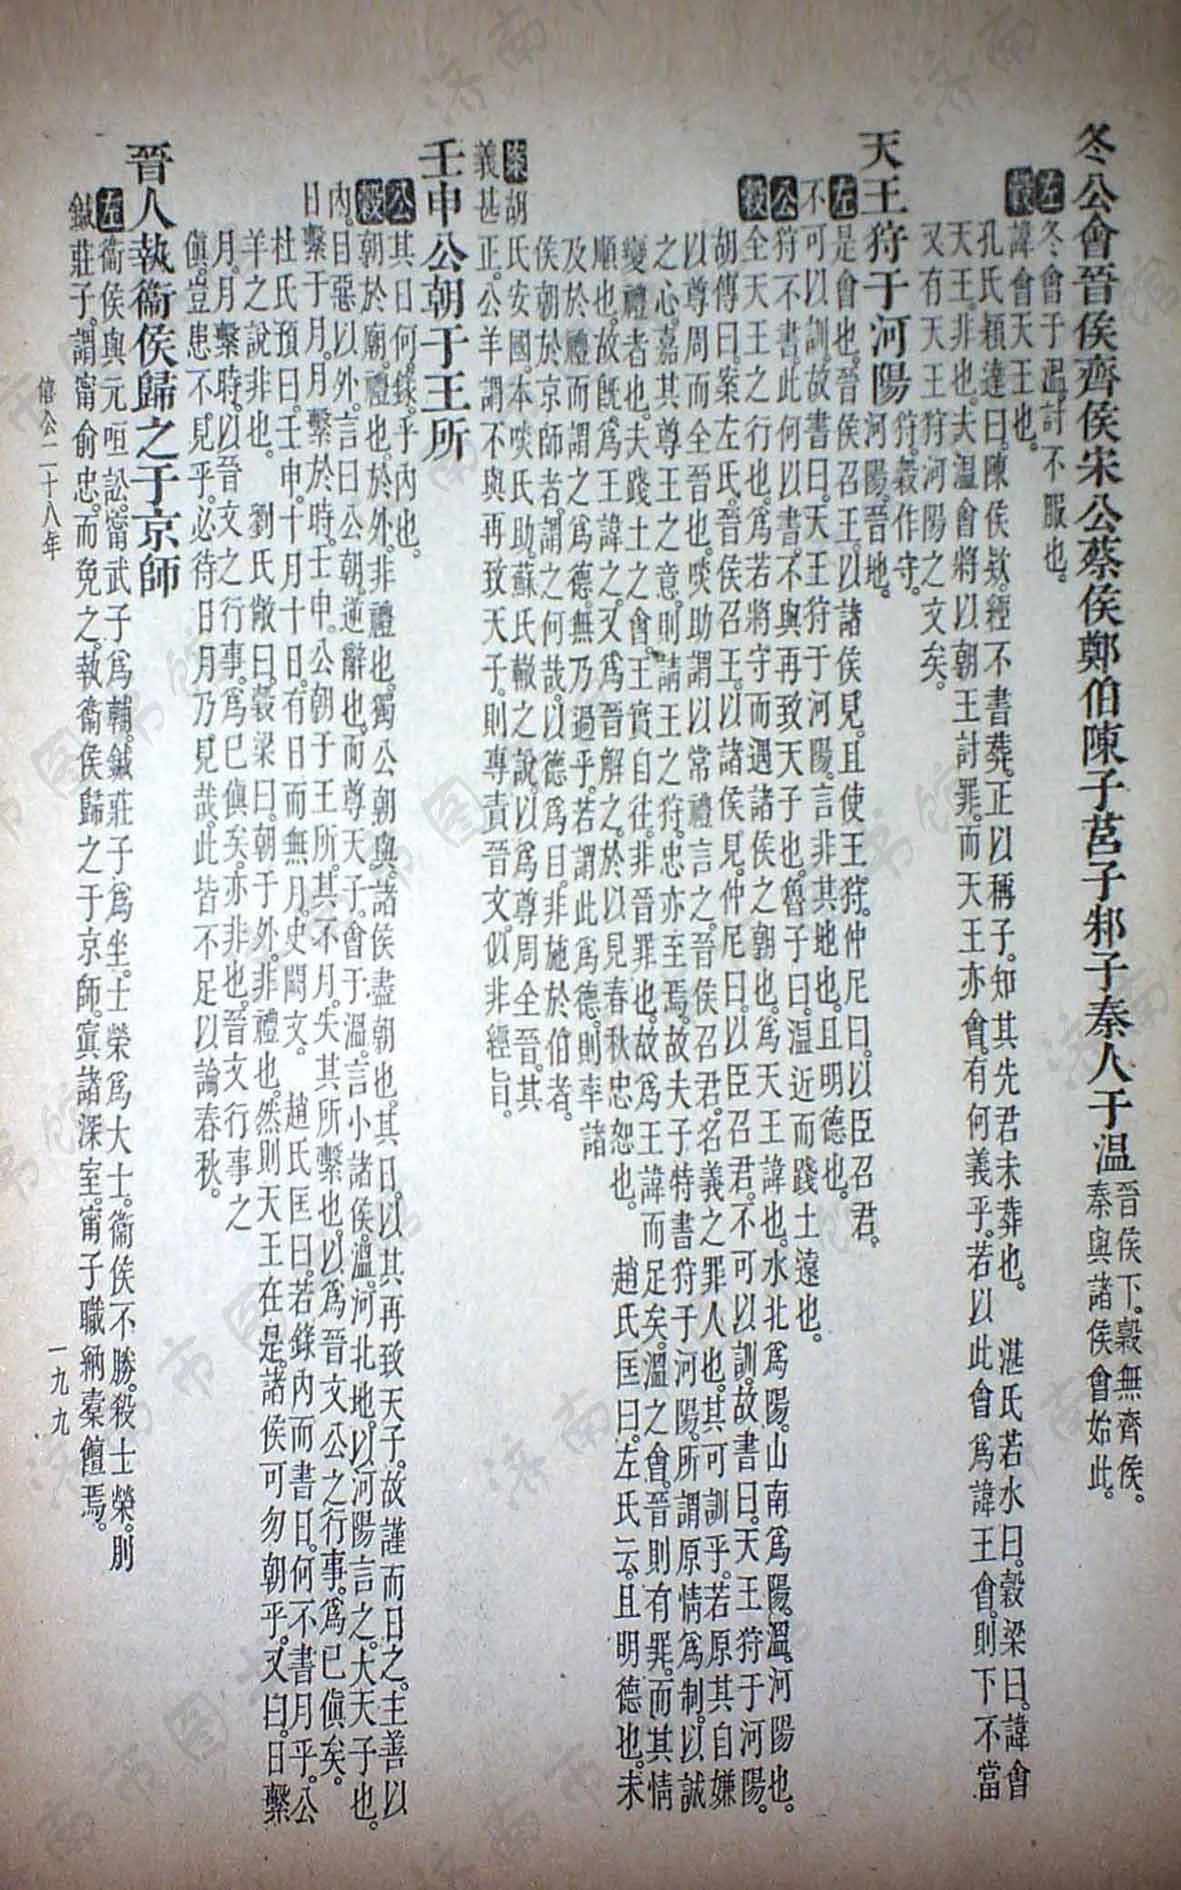 冬公會晉侯齊侯宋公蔡侯鄭伯陳子莒子邾子秦人于溫
晉侯下。穀無齊侯。
秦與諸侯會始此。
左冬會于溫。討不服也。
穀諱會天王也。
孔氏穎達曰。陳侯欵。經不書葬。正以稱子。知其先君未葬也。　湛氏若水曰。穀梁曰。諱會
天王。非也。夫溫會將以朝王討罪。而天王亦會。有何義乎。若以此會爲諱王會。則下不當
又有天王狩河陽之文矣。
天王狩于河陽
狩。穀作守。
河陽。晉地。
左是會也。晉侯召王。以諸侯見。且使王狩。仲尼曰。以臣召君。
不可以訓。故書曰。天王狩于河陽。言非其地也。且明德也。
公狩不書。此何以書。不與再致天子也。魯子曰。溫近而踐土遠也。
穀全天王之行也。爲若將守而遇諸侯之朝也。爲天王諱也。水北爲陽。山南爲陽。溫。河陽也。
胡傳曰。案左氏。晉侯召王。以諸侯見。仲尼曰。以臣召君。不可以訓。故書曰。天王狩于河陽。
以尊周而全晉也。啖助謂以常禮言之。晉侯召君。名義之罪人也。其可訓乎。若原其自嫌
之心。嘉其尊王之意。則請王之狩。忠亦至焉。故夫子特書狩于河陽。所謂原情爲制。以誠
變禮者也。夫踐土之會。王實自往。非晉罪也。故爲王諱而足矣。溫之會。晉則有罪。而其情
順也。故旣爲王諱之。又爲晉解之。於以見春秋忠恕也。　趙氏匡曰。左氏云。且明德也。未
及於禮而謂之爲德。無乃過乎。若謂此爲德。則率諸
侯朝於京師者。謂之何哉。以德爲目。非施於伯者。
案胡氏安國。本啖氏助。蘇氏轍之說。以爲尊周全晉。其
義甚正。公羊謂不與再致天子。則專責晉文。似非經旨。
壬申公朝于王所
公其日何。錄乎內也。
穀朝於廟。禮也。於外。非禮也。獨公朝與。諸侯盡朝也。其日。以其再致天子。故謹而日之。主善以
內。目惡以外。言曰公朝。逆辭也。而尊天子。會于溫。言小諸侯。溫。河北地。以河陽言之。大天子也。
日繫于月。月繫於時。壬申。公朝于王所。其不月。失其所繫也。以爲晉文公之行事。爲已傎矣。
杜氏預曰。壬申。十月十日。有日而無月。史闕文。　趙氏匡曰。若錄內而書日。何不書月乎。公
羊之說非也。　劉氏敞曰。穀梁曰。朝于外。非禮也。然則天王在是。諸侯可勿朝乎。又曰。日繫
月。月繫時。以晉文之行事。爲已傎矣。亦非也。晉文行事之
傎。豈患不見乎。必待日月乃見哉。此皆不足以論春秋。
晉人執衞侯歸之于京師
左衞侯與元咺訟。甯武子爲輔。鍼莊子爲坐。士榮爲大士。衞侯不勝。殺士榮。刖
鍼莊子。謂甯俞忠。而免之。執衞侯歸之于京師。寘諸深室。甯子職納槖饘焉。
僖公二十八年
一九九